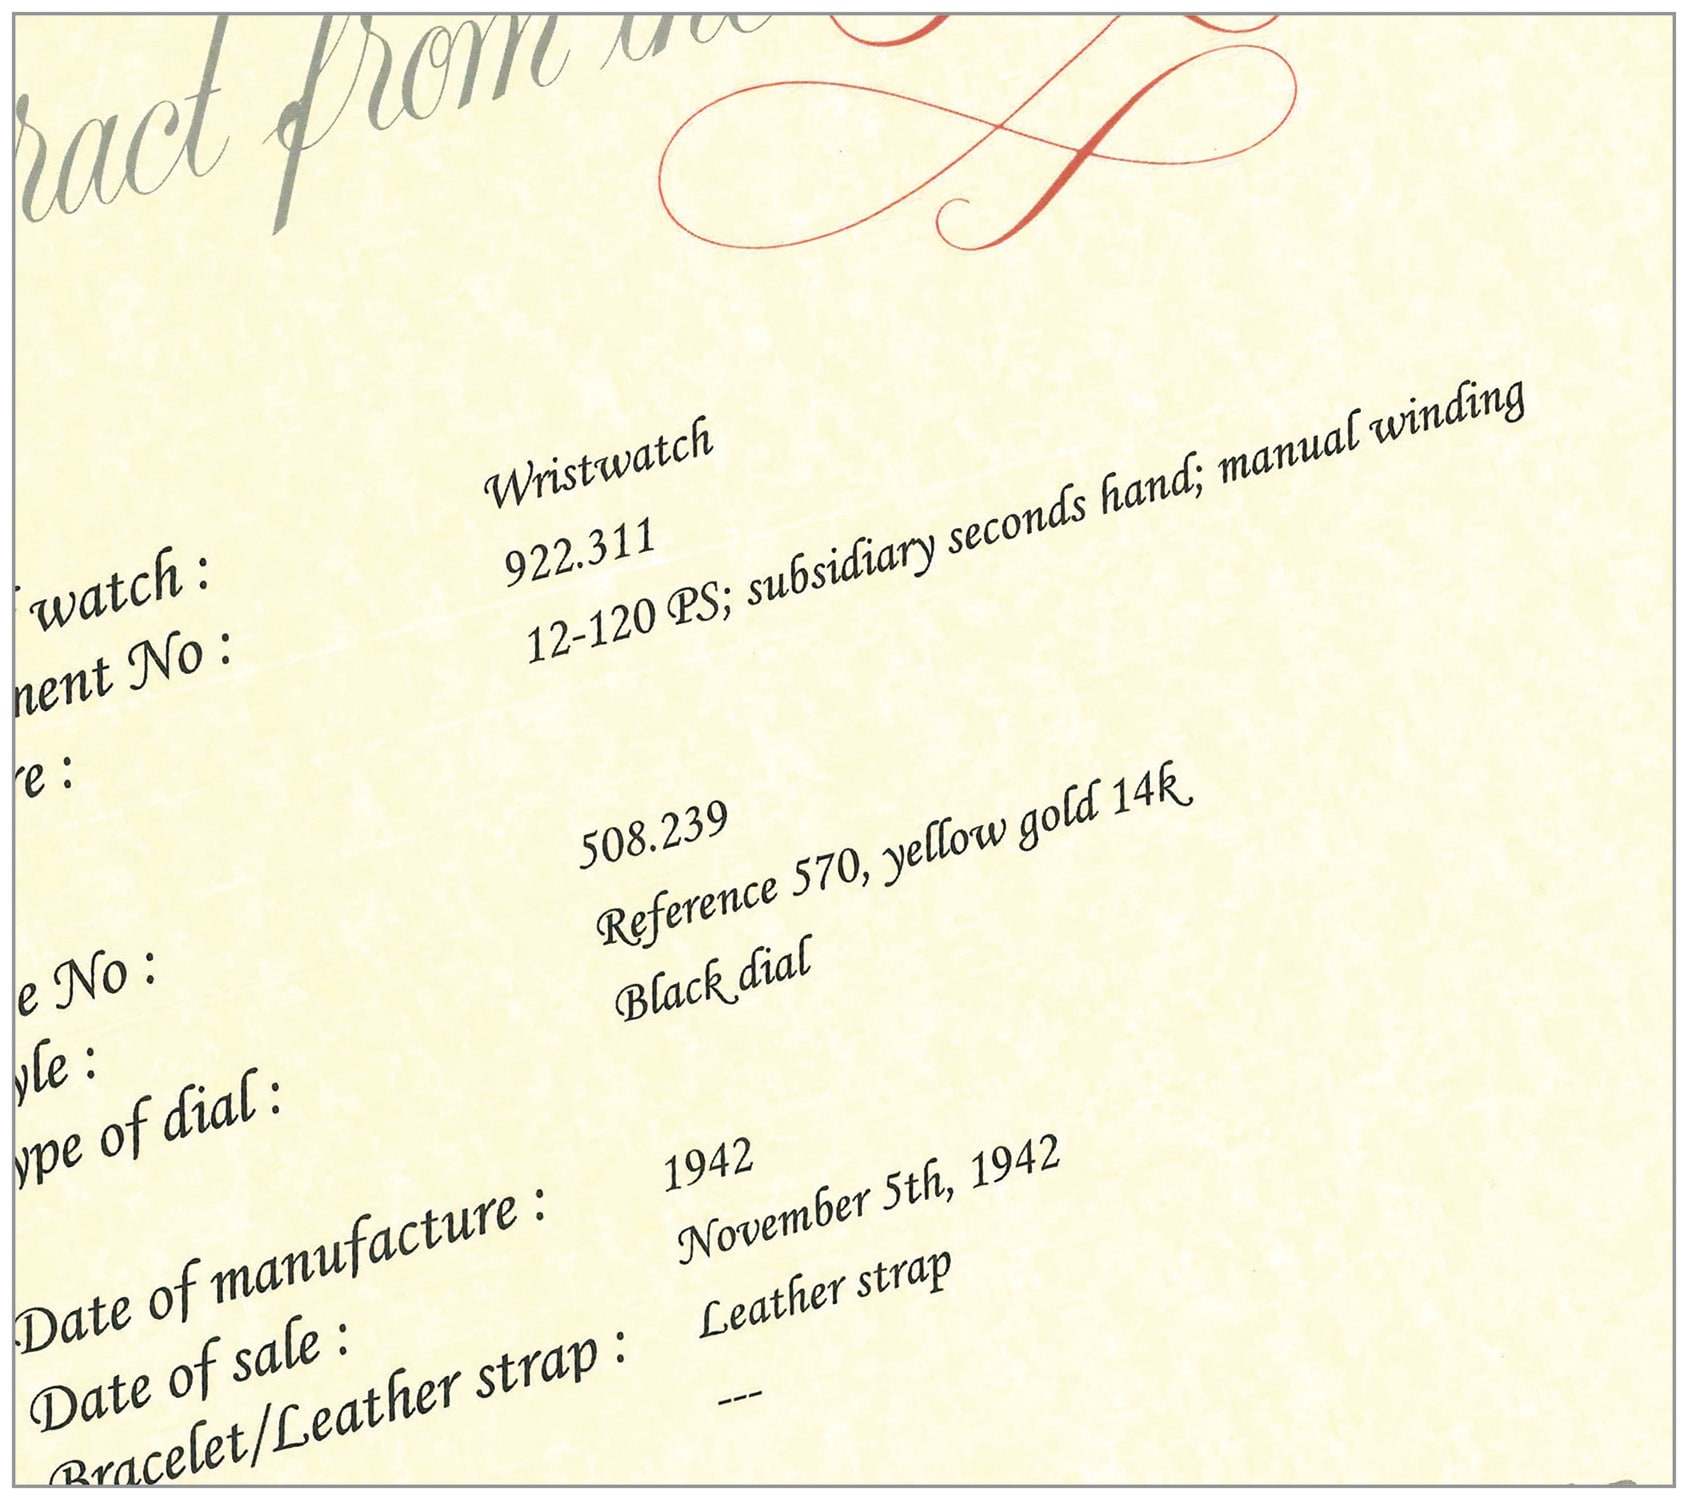 ract from the
watch : Wristwatch
ment No : 922.311
re : 12-120 PS; subsidiary seconds hand; manual winding
e No : 508.239
yle : Reference 570, yellow gold 14k
ype of dial : Black dial
Date of manufacture : 1942
Date of sale : November 5th, 1942
Bracelet/Leather strap : Leather strap
---